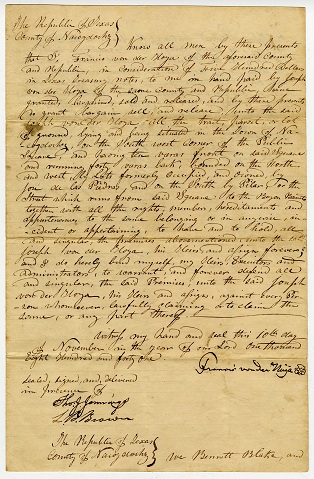 The Republic of Texas
County of Nacogdoches } Know all men by these Presents
that I, Francis von der Hoya of the foresaid County
and Republic, in consideration of Four Hundred Dollars
in Texas Treasury notes, to me in hand paid by Joseph
von der Hoya of the same County and Republic, have
granted, bargained, sold and released, and by these presents
do grant, bargain, sell and release, unto the said
Joseph von der Hoya all the tract, parcel, or lot
of ground, lying and being situated in the Town of Na-
cogdoches, on the North west corner of the Public
Square and having ten varas front on said Square
and running forty varas back, bounded on the North
and west by Lots formerly occupied and owned by
Jose de las Piedras, and on the North by Pilar, or the
Street which runs from said Square to the Bayou
together with all the rights, members, Hereditaments and
appurtenances to the same belonging or in anywise, in-
cident or appertaining, to have and to hold, all
and singular, the premises abovementioned, unto the said
Joseph von der Hoya, his Heirs, and assigns forever;
and I do hereby bind myself, my Heirs, Executors, and
administrators, to warrant, and forever defend all
and singular, the said Premises, unto the said Joseph
von der Hoya, his Heirs and assigns, against every Per-
son whomsoever lawfully claiming or to claim the
same, or any part thereof.
Witness my hand and seal this 10th day
of November in the year of our Lord One thousand
Eight Hundred and forty One
Francis von der Hoya
sealed, signed, and delivered
in presence of
Thos J Jennings
L. Brown
The Republic of Texas
County of Nacogdoches } We Bennett Blake, and